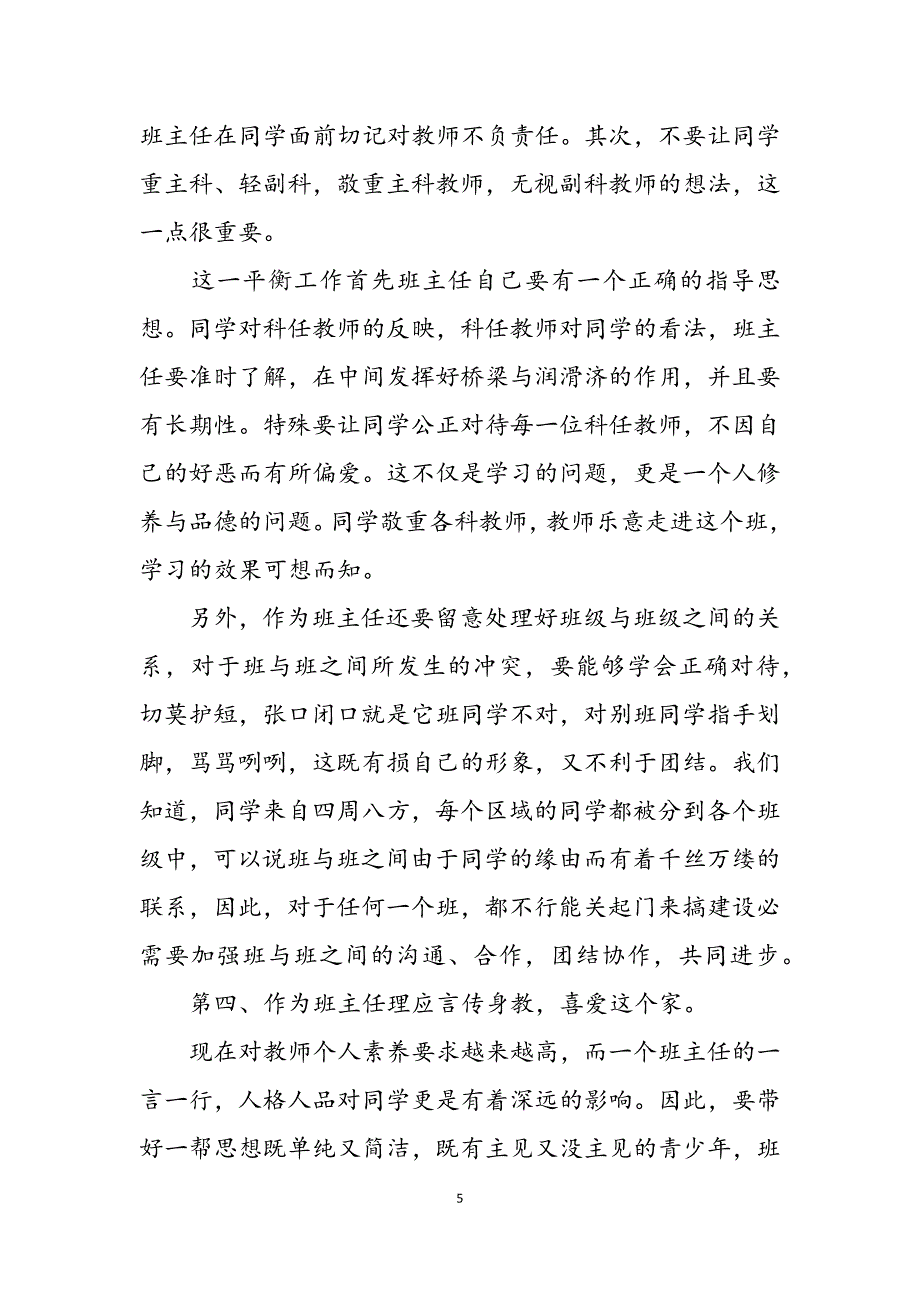 班主任在同学面前切记对教师不负责任。其次，不要让同学
重主科、轻副科，敬重主科教师，无视副科教师的想法，这
一点很重要。
这一平衡工作首先班主任自己要有一个正确的指导思
想。同学对科任教师的反映，科任教师对同学的看法，班主
任要准时了解，在中间发挥好桥梁与润滑济的作用，并且要
有长期性。特殊要让同学公正对待每一位科任教师，不因自
己的好恶而有所偏爱。这不仅是学习的问题，更是一个人修
养与品德的问题。同学敬重各科教师，教师乐意走进这个班，
学习的效果可想而知。
另外，作为班主任还要留意处理好班级与班级之间的关
系，对于班与班之间所发生的冲突，要能够学会正确对待，
切莫护短，张口闭口就是它班同学不对，对别班同学指手划
脚，骂骂咧咧，这既有损自己的形象，又不利于团结。我们
知道，同学来自四周八方，每个区域的同学都被分到各个班
级中，可以说班与班之间由于同学的缘由而有着千丝万缕的
联系，因此，对于任何一个班，都不行能关起门来搞建设必
需要加强班与班之间的沟通、合作，团结协作，共同进步。
第四、作为班主任理应言传身教，喜爱这个家。
现在对教师个人素养要求越来越高，而一个班主任的一
言一行，人格人品对同学更是有着深远的影响。因此，要带
好一帮思想既单纯又简洁，既有主见又没主见的青少年，班
5